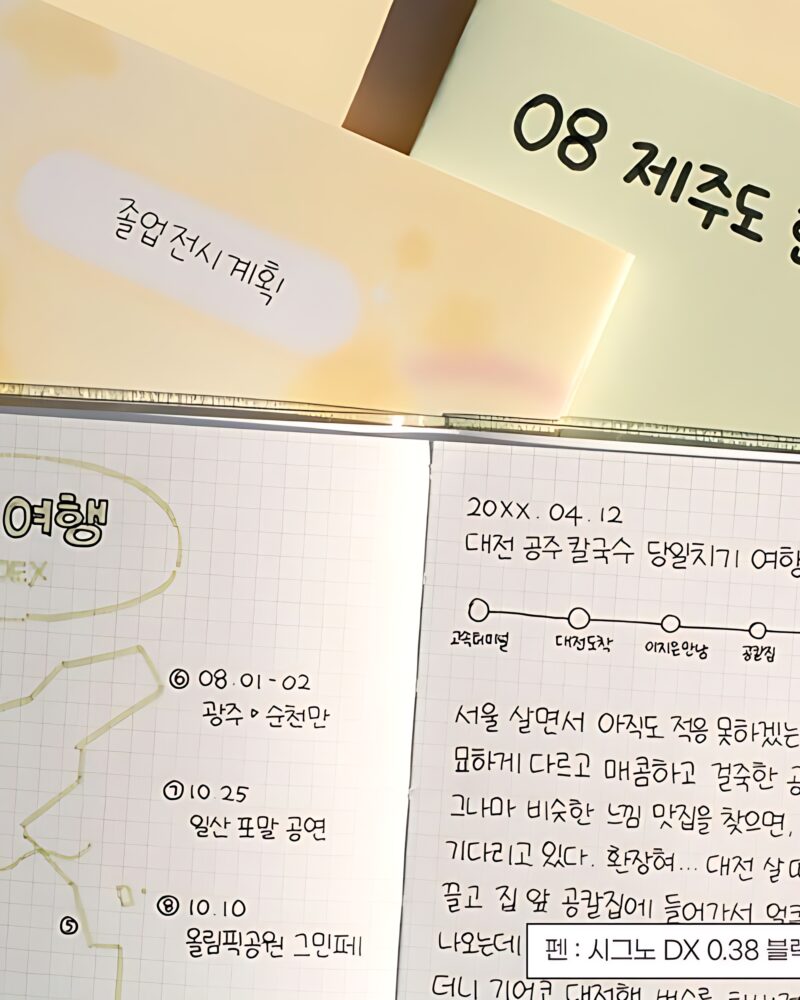 08 제주도
졸업전시계획
여행
20XX. 04. 12
대전 공주칼국수 당일치기 여행
고속터미널 대전도착 이지은만남 공칼집
⑥ 08.01-02
광주 순천만
⑦ 10.25
일산 포말 공연
⑧ 10.10
올림픽공원 그민페
⑤
서울 살면서 아직도 적응 못하겠는
묘하게 다르고 매콤하고 걸쭉한 공
그나마 비슷한 느낌 맛집을 찾으면,
기다리고 있다. 환장혀... 대전 살
끌고 집 앞 공칼집에 들어가서
나오는데
더니 기어코 대전행
펜 : 시그노 DX 0.38 블랙